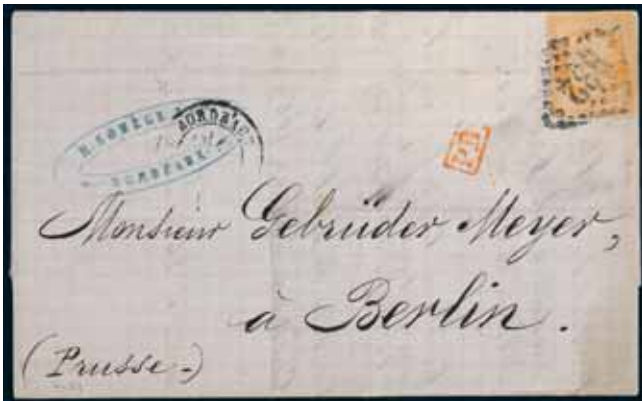 BORDEAUX
BORDEAUX
PD
Monsieur Gebrüder Meyer,
à Berlin.
(Prusse-)